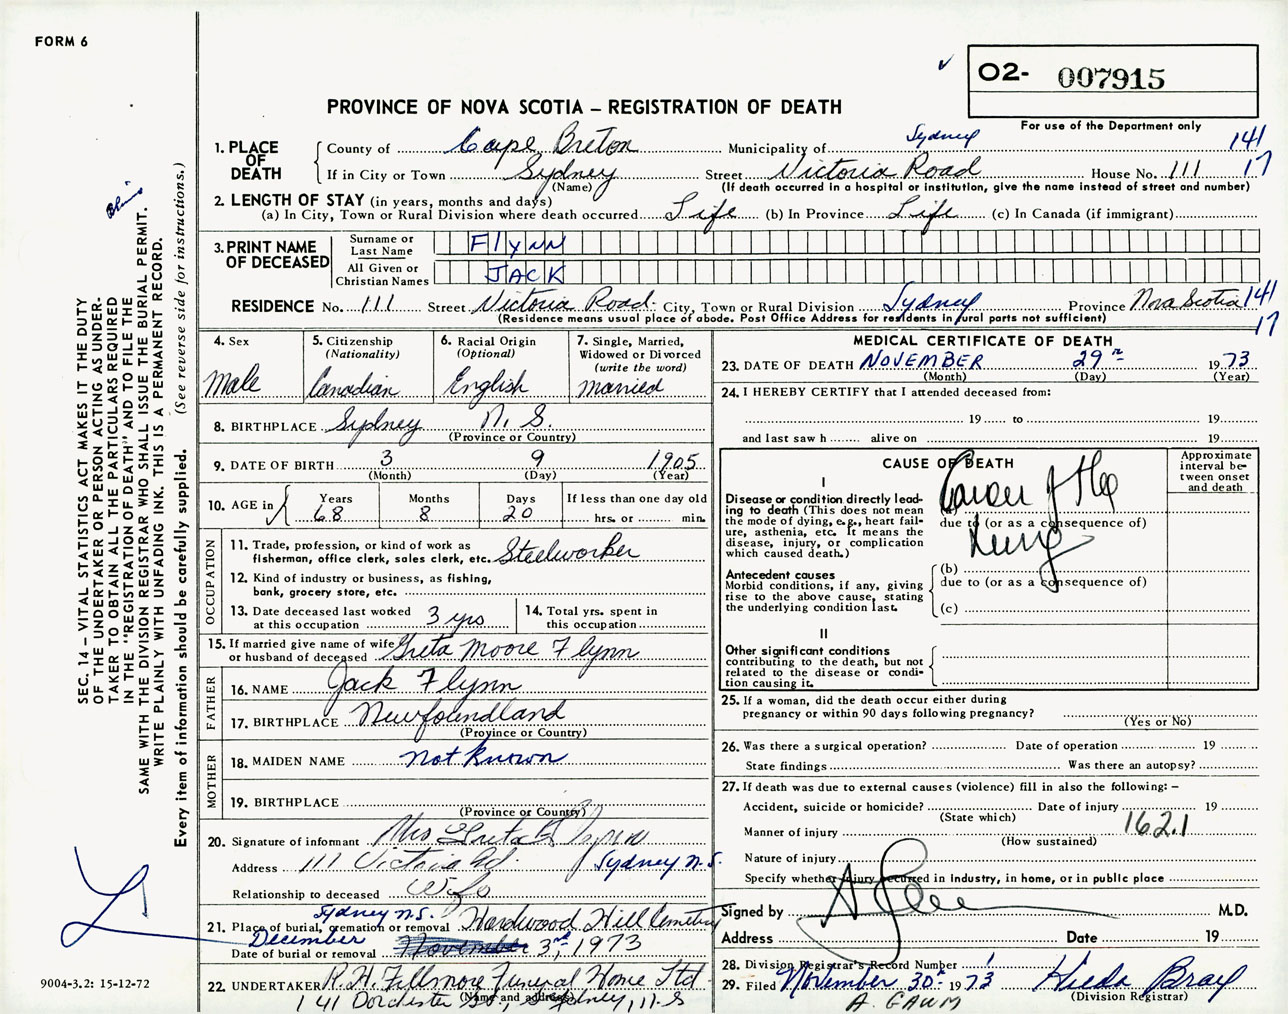 FORM 6
O2- 007915
For use of the Department only
PROVINCE OF NOVA SCOTIA – REGISTRATION OF DEATH
1. PLACE OF DEATH
County of Cape Breton Municipality of Sydney 141
If in City or Town Sydney Street Victoria Road House No. 111 17
(Name) (If death occurred in a hospital or institution, give the name instead of street and number)
2. LENGTH OF STAY (in years, months and days)
(a) In City, Town or Rural Division where death occurred Life (b) In Province Life (c) In Canada (if immigrant)
3. PRINT NAME OF DECEASED
Surname or Last Name Flynn
All Given or Christian Names JACK
RESIDENCE No. 111 Street Victoria Road City, Town or Rural Division Sydney Province Nova Scotia 141
(Residence means usual place of abode. Post Office Address for residents in rural parts not sufficient) 17
4. Sex Male
5. Citizenship (Nationality) Canadian
6. Racial Origin (Optional) English
7. Single, Married, Widowed or Divorced (write the word) married
8. BIRTHPLACE Sydney N. S.
(Province or Country)
9. DATE OF BIRTH 3 9 1905
(Month) (Day) (Year)
10. AGE in Years Months Days If less than one day old
68 8 20 hrs. or min.
OCCUPATION
11. Trade, profession, or kind of work as fisherman, office clerk, sales clerk, etc. Steelworker
12. Kind of industry or business, as fishing, bank, grocery store, etc.
13. Date deceased last worked at this occupation 3 yrs
14. Total yrs. spent in this occupation
15. If married give name of wife or husband of deceased Greta Moore Flynn
FATHER
16. NAME Jack Flynn
17. BIRTHPLACE Newfoundland
(Province or Country)
MOTHER
18. MAIDEN NAME not known
19. BIRTHPLACE
(Province or Country)
20. Signature of informant Mrs Greta Flynn
Address 111 Victoria Rd. Sydney N.S.
Relationship to deceased Wife
21. Place of burial, cremation or removal Sydney N.S. Hardwood Hill Cemetery
Date of burial or removal December November 3rd, 1973
22. UNDERTAKER R.H. Fillmore Funeral Home Ltd
141 Dorchester St., Sydney, N.S
(Name and address)
MEDICAL CERTIFICATE OF DEATH
23. DATE OF DEATH NOVEMBER 29th 1973
(Month) (Day) (Year)
24. I HEREBY CERTIFY that I attended deceased from:
19 to 19
and last saw h alive on 19
CAUSE OF DEATH
Approximate interval between onset and death
I
Disease or condition directly leading to death (This does not mean the mode of dying, e.g., heart failure, asthenia, etc. It means the disease, injury, or complication which caused death.)
(a) Cancer of the Lung
due to (or as a consequence of)
Antecedent causes
Morbid conditions, if any, giving rise to the above cause, stating the underlying condition last.
(b)
due to (or as a consequence of)
(c)
II
Other significant conditions
contributing to the death, but not related to the disease or condition causing it.
25. If a woman, did the death occur either during pregnancy or within 90 days following pregnancy?
(Yes or No)
26. Was there a surgical operation? Date of operation 19
State findings Was there an autopsy?
27. If death was due to external causes (violence) fill in also the following: –
Accident, suicide or homicide? Date of injury 19
(State which) 162.1
Manner of injury
(How sustained)
Nature of injury
Specify whether injury occurred in industry, in home, or in public place
Signed by M.D.
Address Date 19
28. Division Registrar's Record Number 1
29. Filed November 30th 1973 Hilda Bray
(Division Registrar)
A. GAUM
SEC. 14 – VITAL STATISTICS ACT MAKES IT THE DUTY
OF THE UNDERTAKER OR PERSON ACTING AS UNDER-
TAKER TO OBTAIN ALL THE PARTICULARS REQUIRED
IN THE "REGISTRATION OF DEATH" AND TO FILE THE
SAME WITH THE DIVISION REGISTRAR WHO SHALL ISSUE THE BURIAL PERMIT.
WRITE PLAINLY WITH UNFADING INK. THIS IS A PERMANENT RECORD.
Every item of information should be carefully supplied. (See reverse side for instructions.)
9004-3.2: 15-12-72